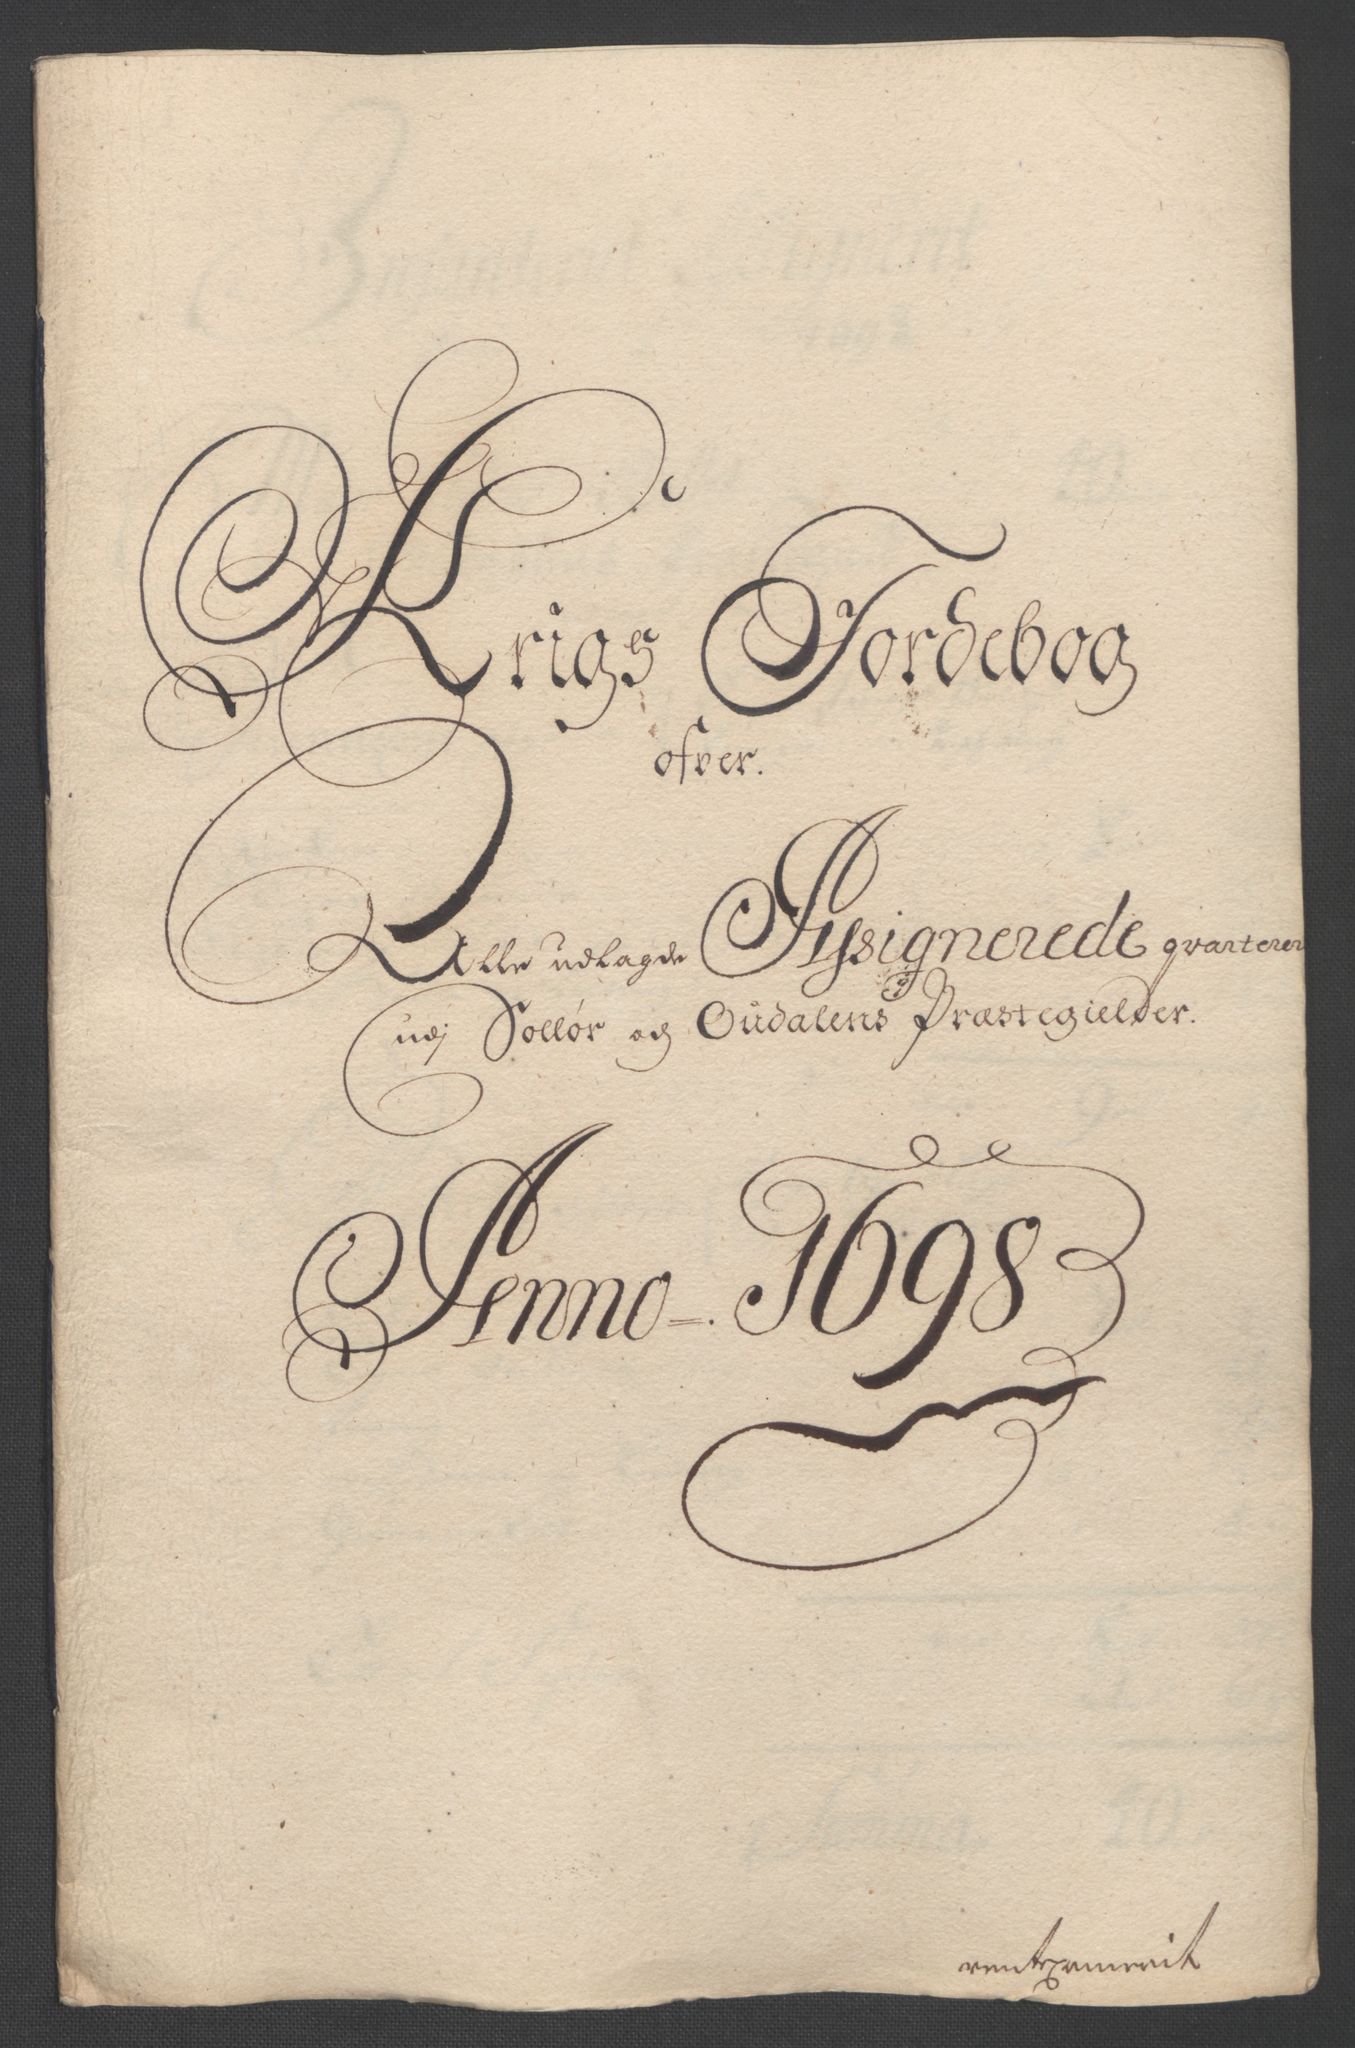 Krigs Jordebog
ofver.
Alle udlagde Assignerede qvarterer
udj Sollør og Oüdalens Præstegielder.
Anno =. 1698